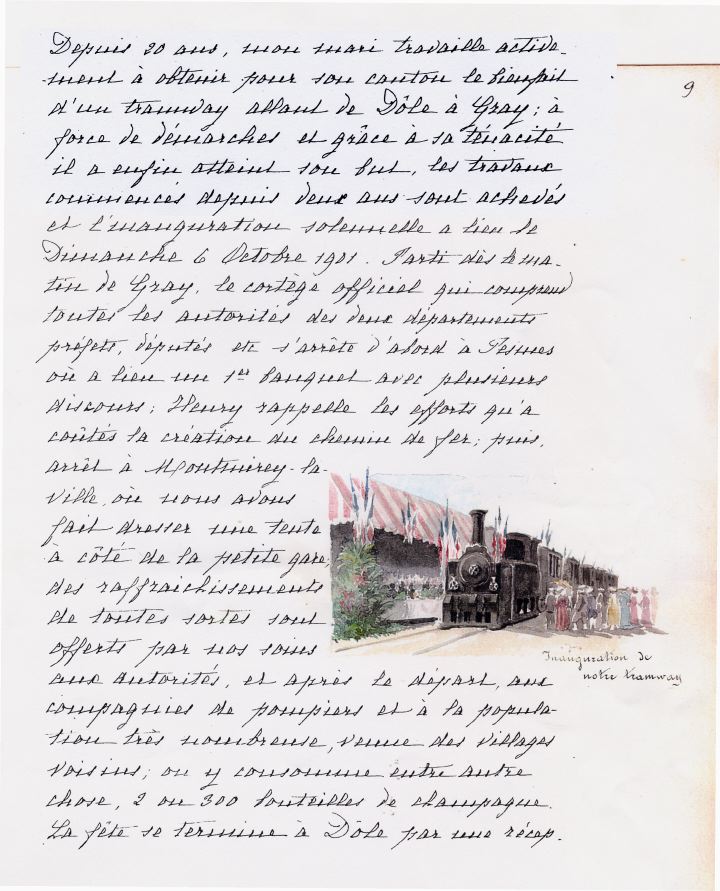 9
Depuis 20 ans, mon mari travaille active-
ment à obtenir pour son canton le bienfait
d'un tramway allant de Dôle à Gray; à
force de démarches et grâce à sa ténacité
il a enfin atteint son but, les travaux
commencés depuis deux ans sont achevés
et l'inauguration solennelle a lieu le
Dimanche 6 Octobre 1901. Parti dès le ma-
tin de Gray, le cortège officiel qui comprend
toutes les autorités des deux départements
préfets, députés etc s'arrête d'abord à Pesmes
où a lieu un 1er banquet avec plusieurs
discours; Henry rappelle les efforts qu'a
coûtés la création du chemin de fer; puis,
arrêt à Montmirey-la-
ville, où nous avons
fait dresser une tente
a côté de la petite gare,
des raffraichissements
de toutes sortes sont
offerts par nos soins
aux autorités, et après le départ, aux
compagnies de pompiers et à la popula-
tion très nombreuse, venue des villages
voisins; on y consomme entre autre
chose, 2 ou 300 bouteilles de champagne.
La fête se termine à Dôle par une récep-
Inauguration de
notre tramway